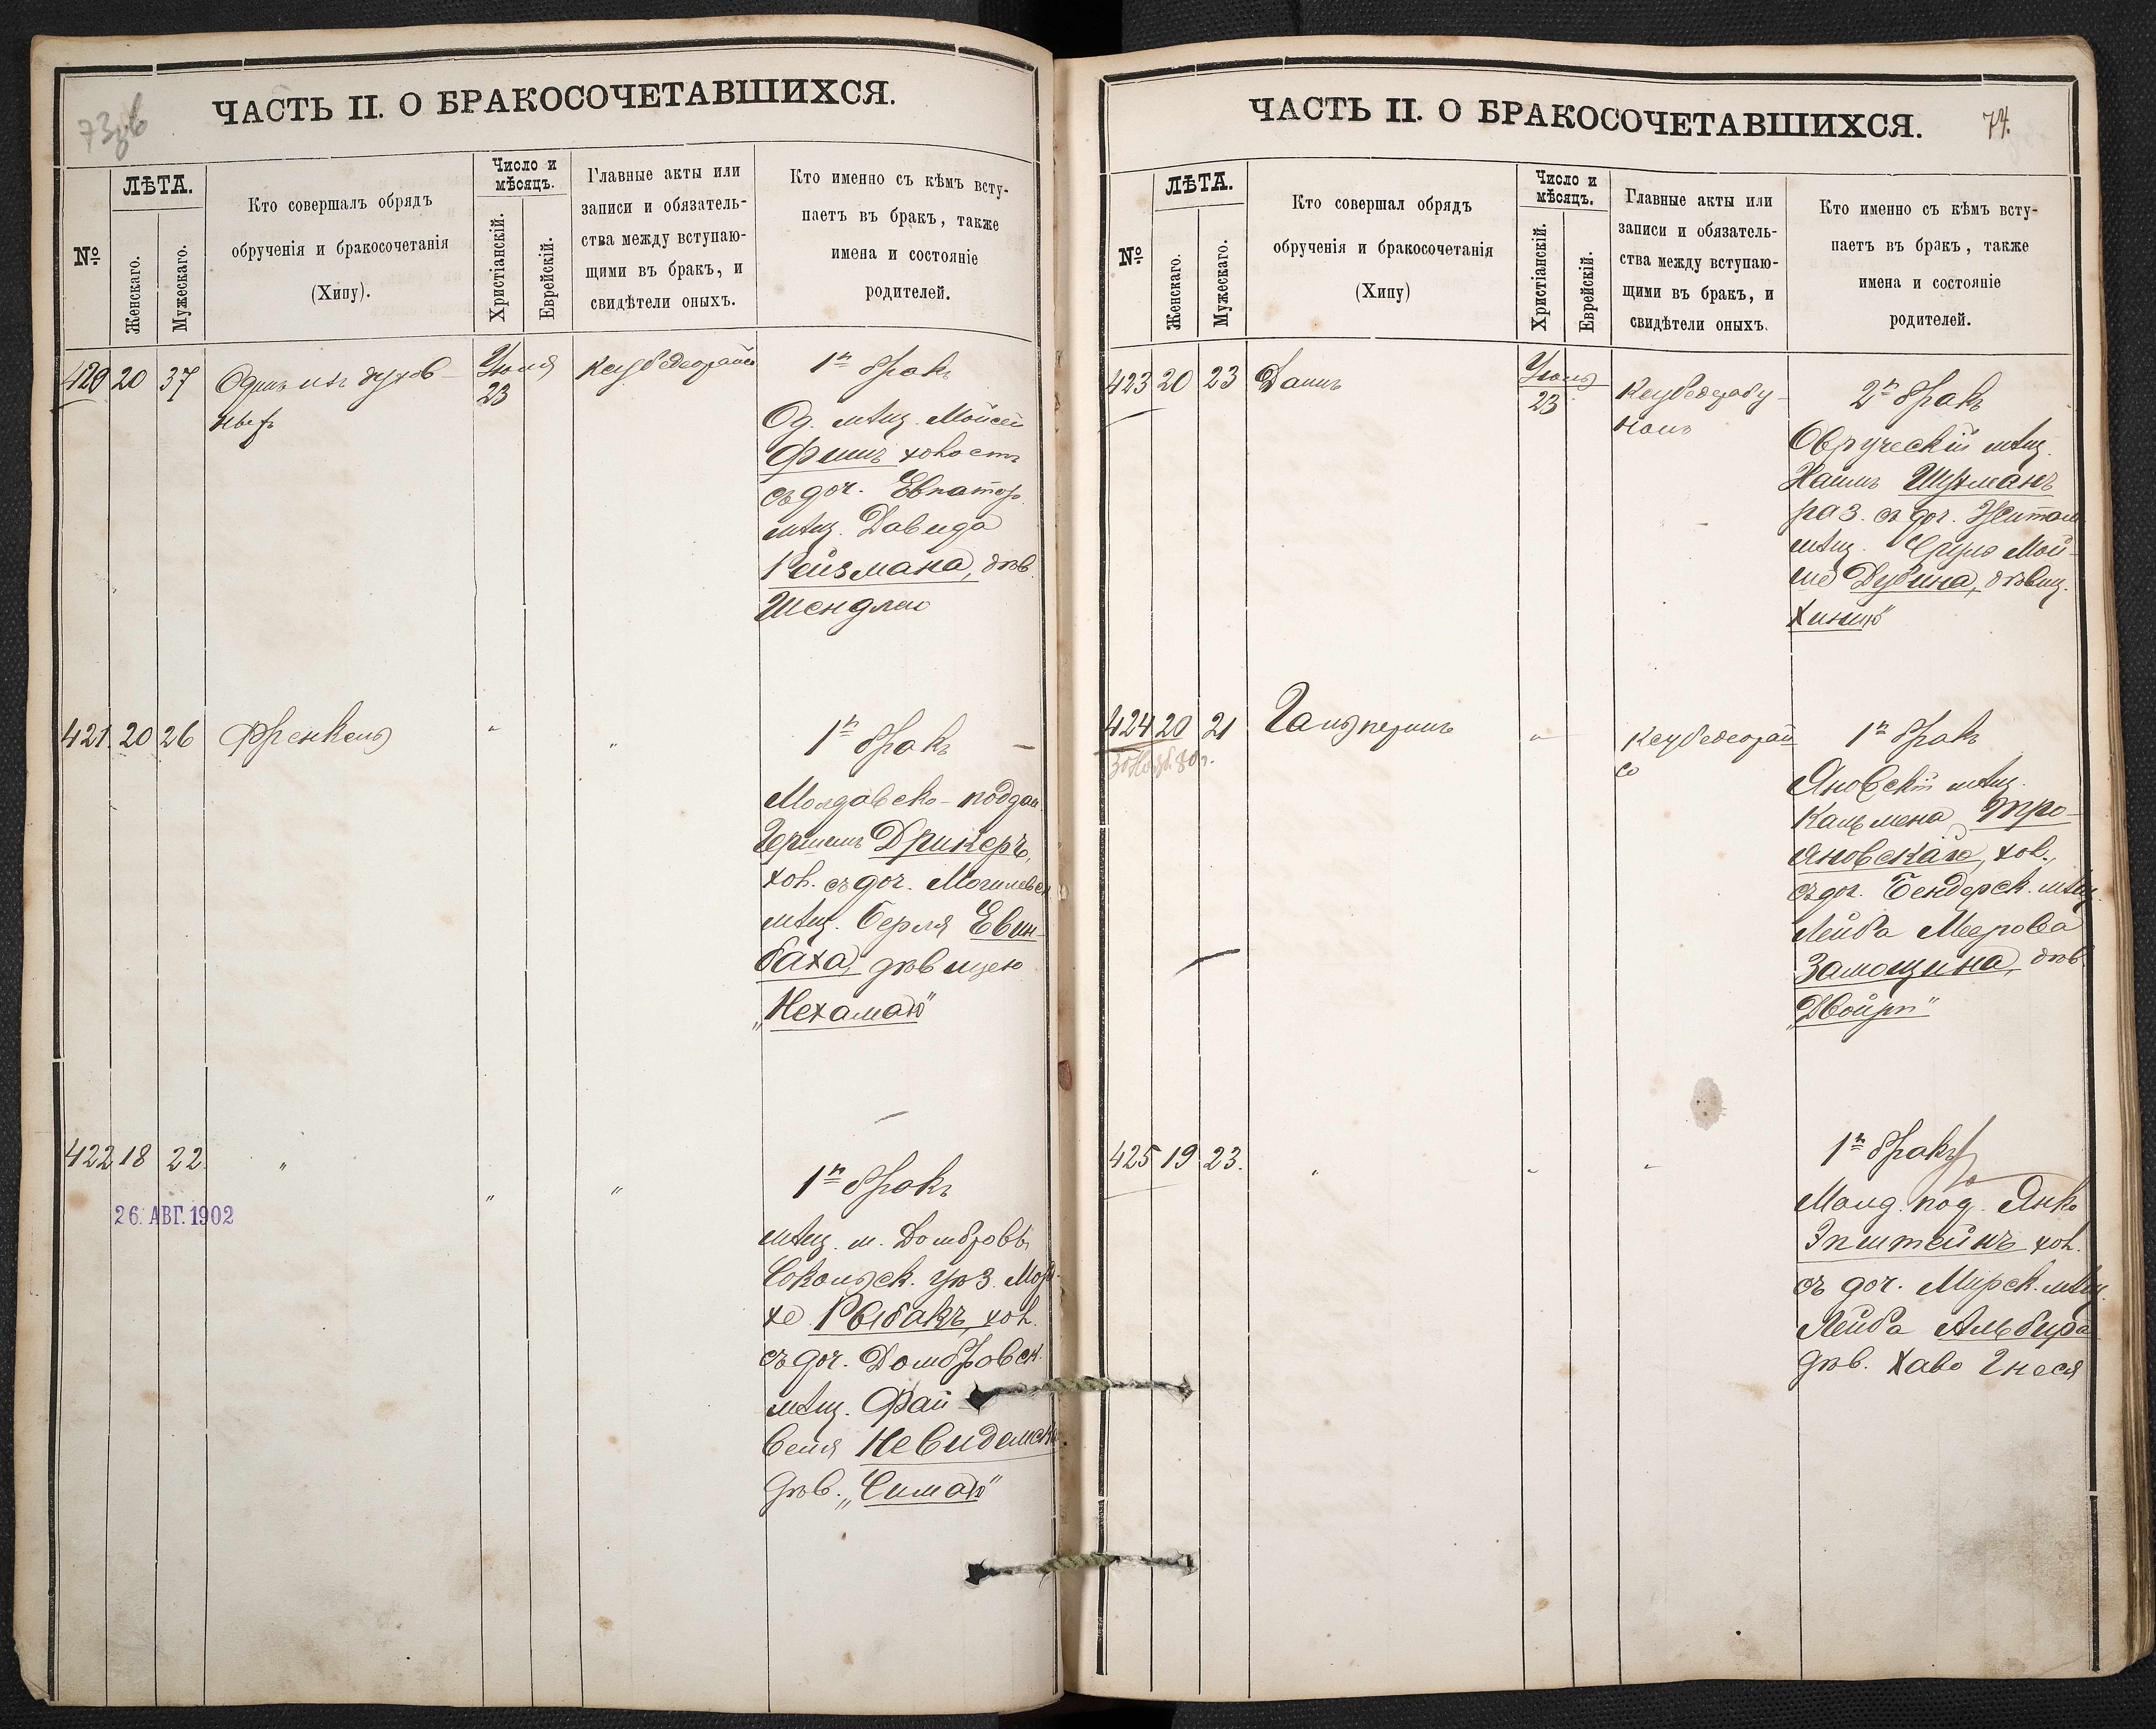 73об
ЧАСТЬ II. О БРАКОСОЧЕТАВШИХСЯ.
№
ЛѢТА.
Женскаго.
Мужескаго.
Кто совершалъ обрядъ
обрученія и бракосочетанія
(Хипу).
Число и
мѣсяцъ.
Христіанскій.
Еврейскій.
Главные акты или
записи и обязатель-
ства между вступаю-
щими въ бракъ, и
свидѣтели оныхъ.
Кто именно съ кѣмъ всту-
паетъ въ бракъ, также
имена и состояніе
родителей.
420 20 37
Одинъ изъ духов-
ныхъ
Іюня
23
1й бракъ
Од. мѣщ. Мойсей
Фишъ холостъ
съ доч. Евпатор.
мѣщ. Давида
Рейзмана, дѣв.
Шендлею
421 20 26
Френкель
" "
1й бракъ
Молдавско-поддан.
Гершель Дрикеръ,
хол. съ доч. Могилевск.
мѣщ. Берля Евин-
баха, дѣвицею
„Нехамаю"
422 18 22
26. АВГ. 1902
" " "
1й бракъ
мѣщ. м. Домбровы
Сокольск. уѣз. Морд-
хе Рыбакъ, хол.
съ доч. Домбровск.
мѣщ. Фай-
веля Невидомск.
дѣв. „Симаю"
74.
ЧАСТЬ II. О БРАКОСОЧЕТАВШИХСЯ.
№
ЛѢТА.
Женскаго.
Мужескаго.
Кто совершал обрядъ
обрученія и бракосочетанія
(Хипу)
Число и
мѣсяцъ.
Христіанскій.
Еврейскій.
Главные акты или
записи и обязатель-
ства между вступаю-
щими въ бракъ, и
свидѣтели оныхъ.
Кто именно съ кѣмъ всту-
паетъ въ бракъ, также
имена и состояніе
родителей.
423 20 23
Іюня
23
2й бракъ
Овруческій мѣщ.
Хаимъ Шухманъ
раз. съ доч. Житом.
мѣщ. Сруло Мой-
ше Дубина, дѣвиц.
Хинию"
424 20 21
Гальперинъ
"
1й бракъ
Яновскій мѣщ.
Кальмена Тро-
яновскаго, хол.,
съ доч. Бендерск. мѣщ.
Лейба Меерова
Замощина, дѣв.
„Двойри"
425 19 23.
" " "
1й бракъ
Молд. под. Янко
Эпштейнъ хол.
съ доч. Мирск. мѣщ.
Лейба Альбира
дѣв. Хаво Гнеся